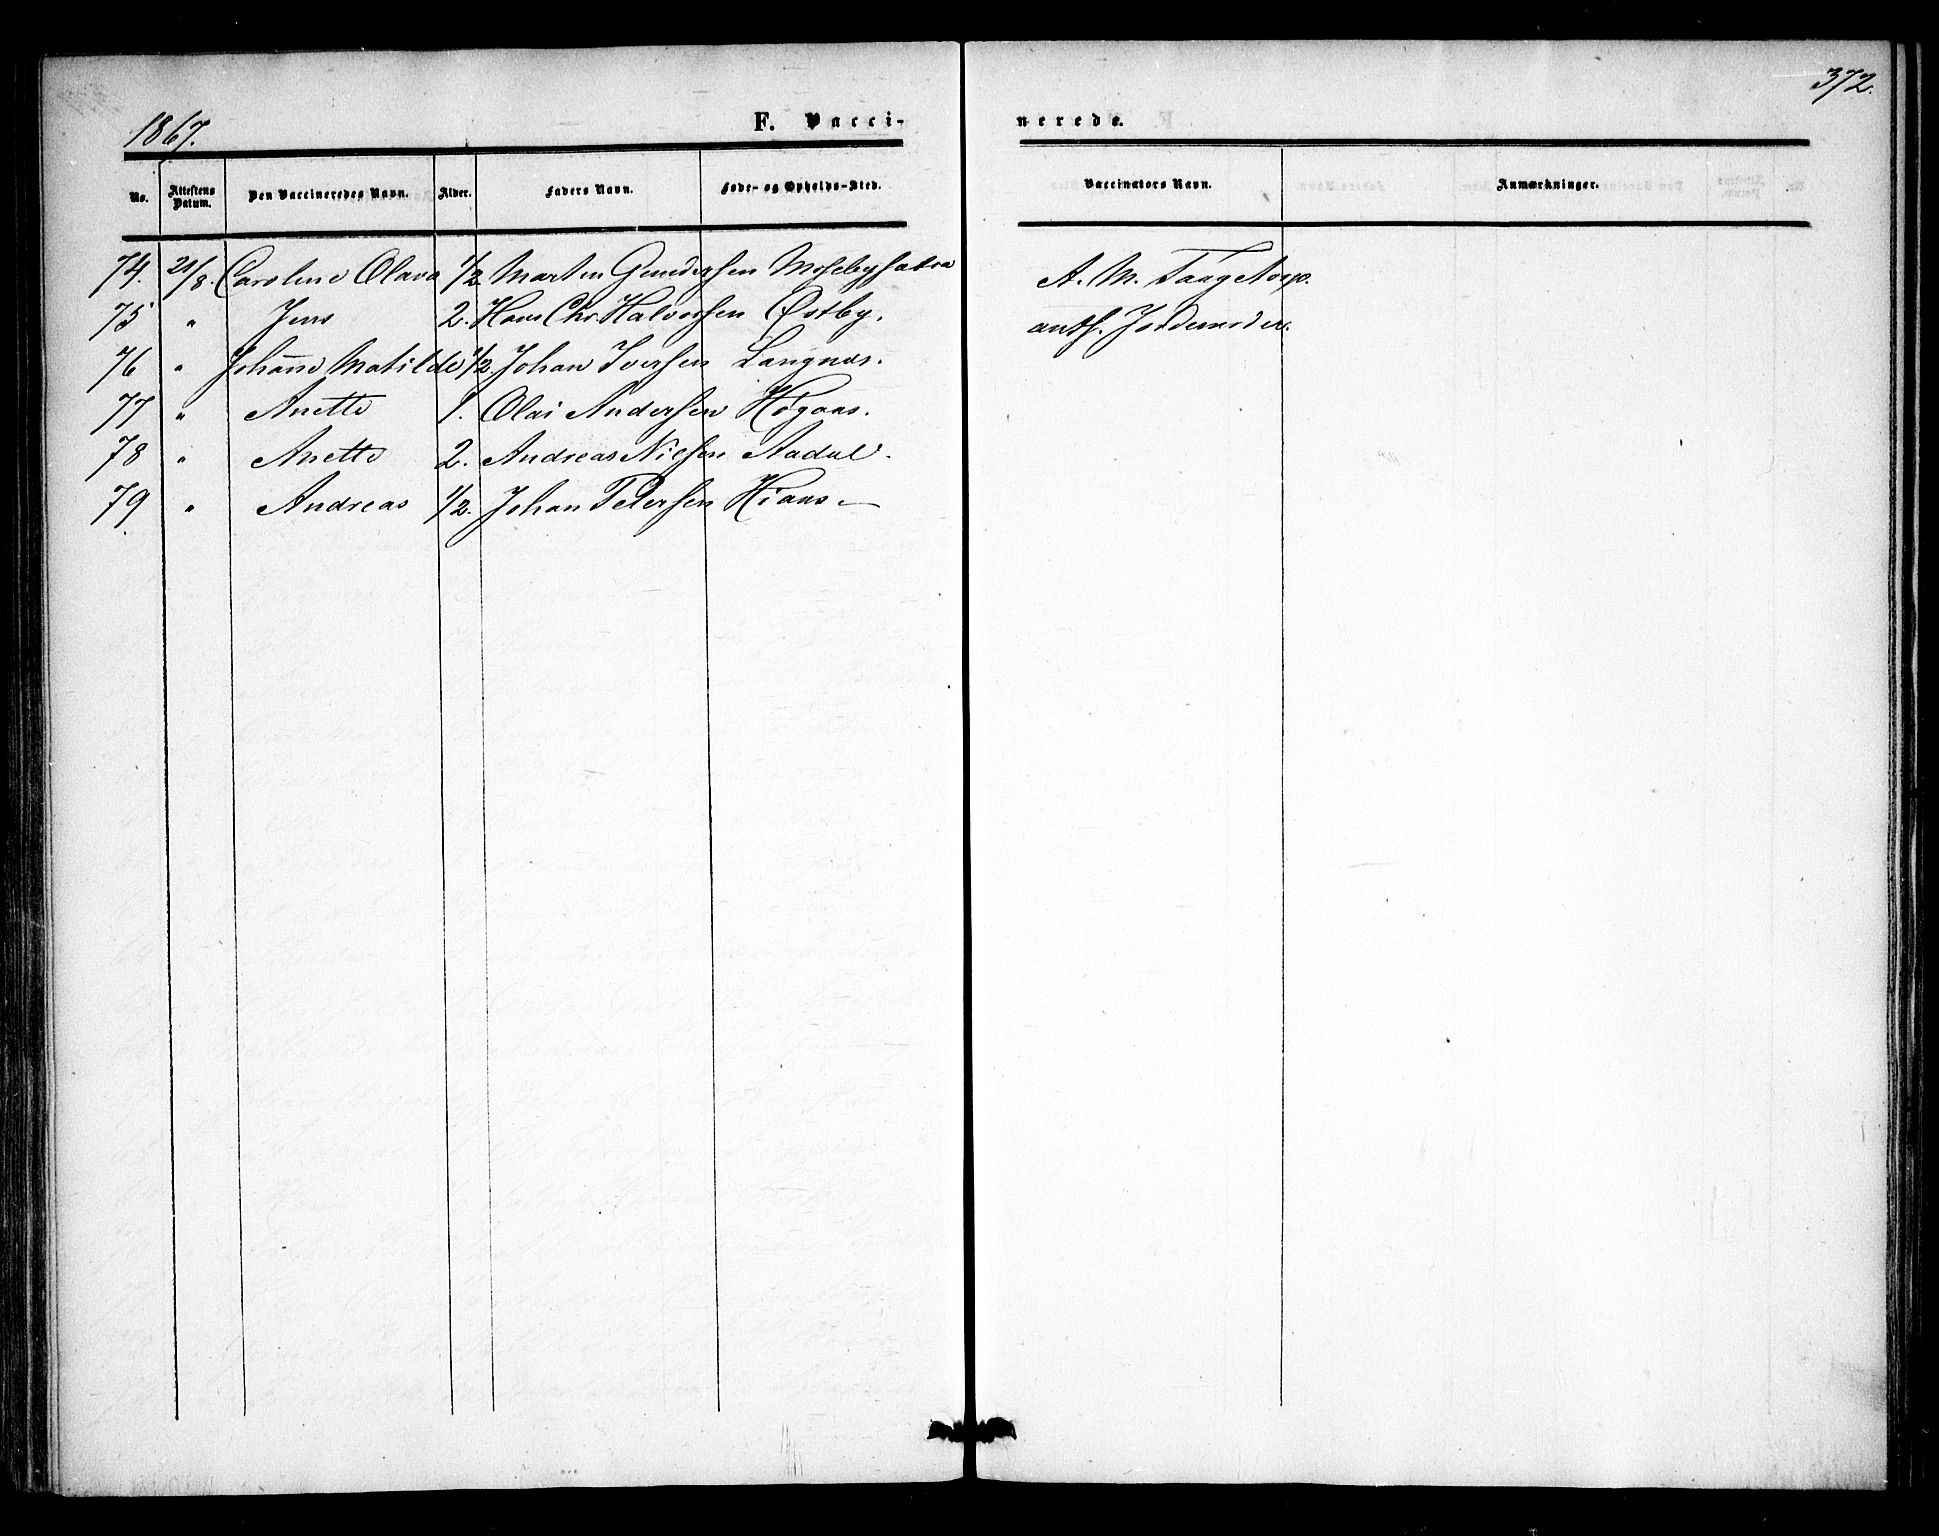 372.
1867.
F. Vacci-
nerede.
No. Attestens Datum. Den Vaccineredes Navn. Alder. Faders Navn. Føde- og Opholds-Sted. Vaccinators Navn. Anmærkninger.
74. 21/8. Caroline Olava 1/2. Marten Gundersen A. M.
75 " Jens 2. Hans Chr. Halvorsen Østby. auth. Jordemoder.
76 " Johanne Matilde 1/2. Johan Iversen Langnæs.
77 " Anette 1. Olai Andersen Høgaas.
78 " Anette 2. Andreas Nielsen Aadal.
79. " Andreas 1/2. Johan Petersen Hiaas